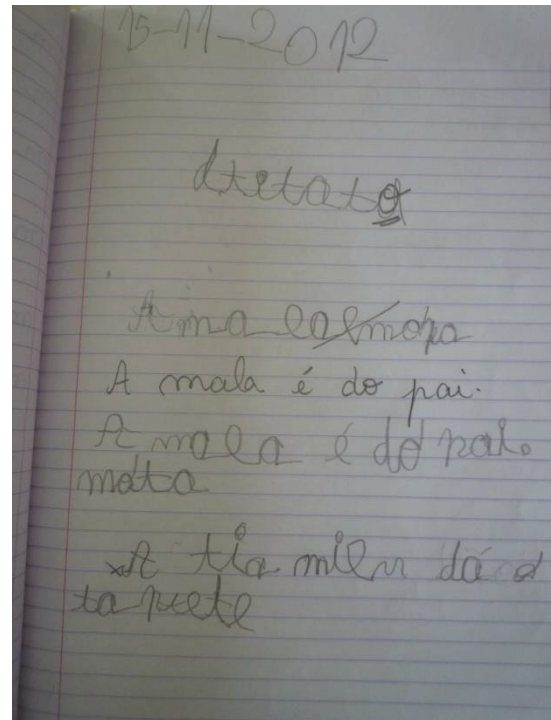 15-11-2012
dtetato
A ma lalmopa
A mala é do pai.
A mala é do pai.
mata
A tia milu dá o
ta pete